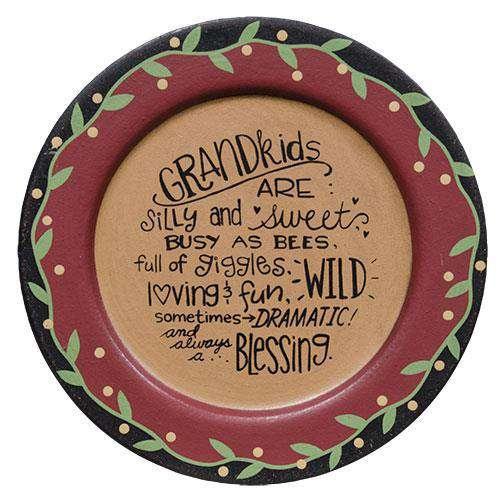 GRANDkids
ARE:
silly and sweet,
BUSY AS BEES,
full of giggles, WILD
loving & fun,
sometimes → DRAMATIC!
and always a... BLESSING.